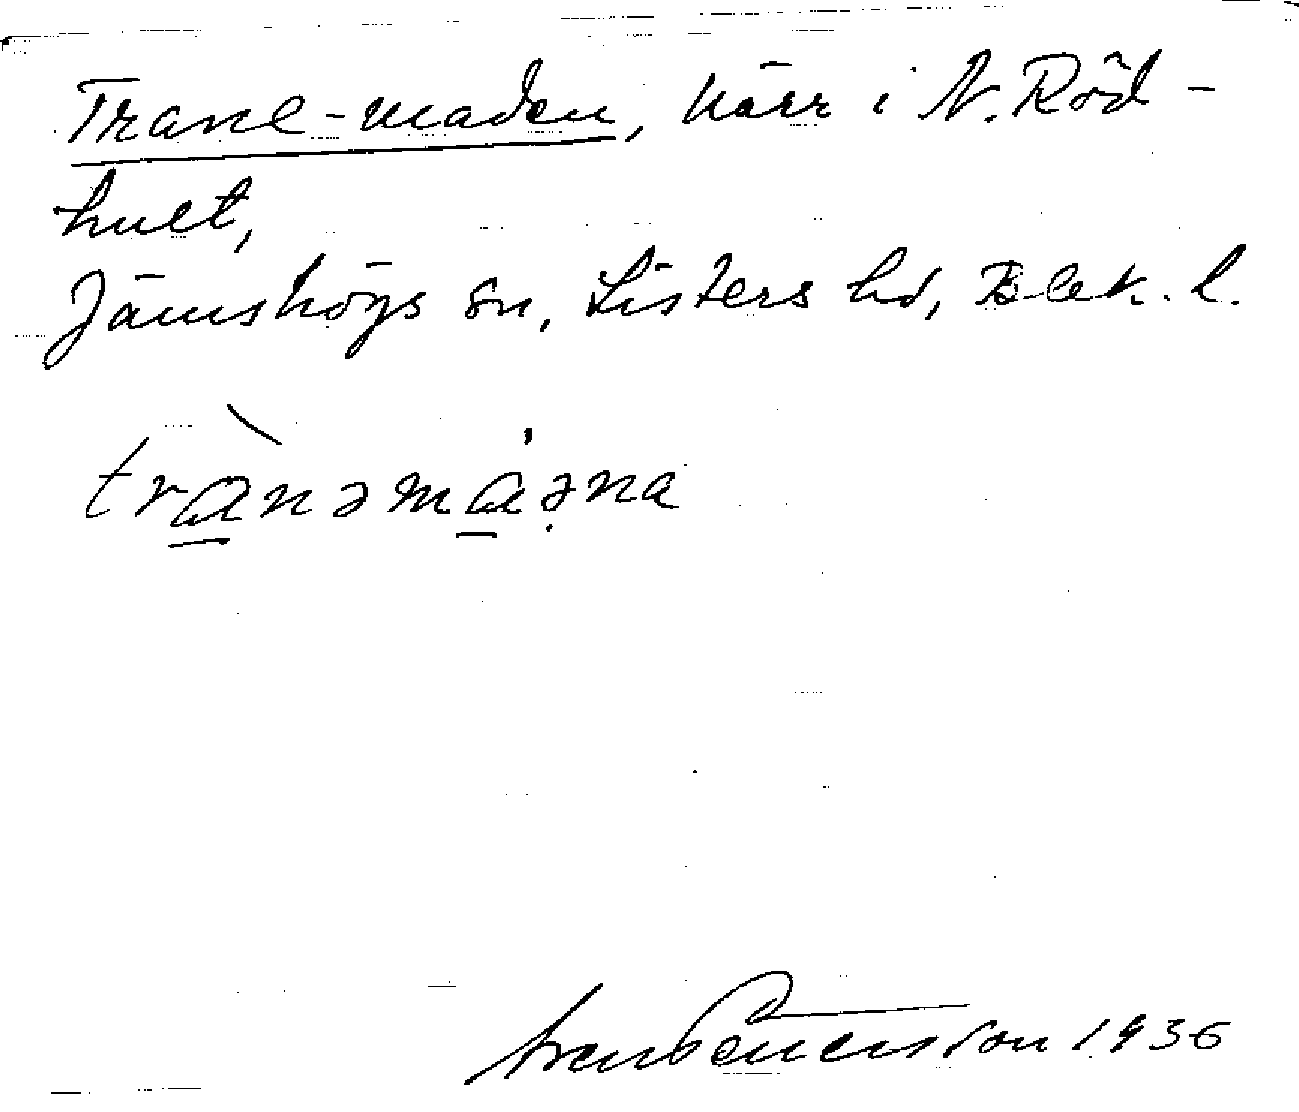 Trane-maden, kärr i N. Röd-
hult,
Jämshögs sn, Listers hd, Blek. l.
trànəmáəna
Sven Benson 1936